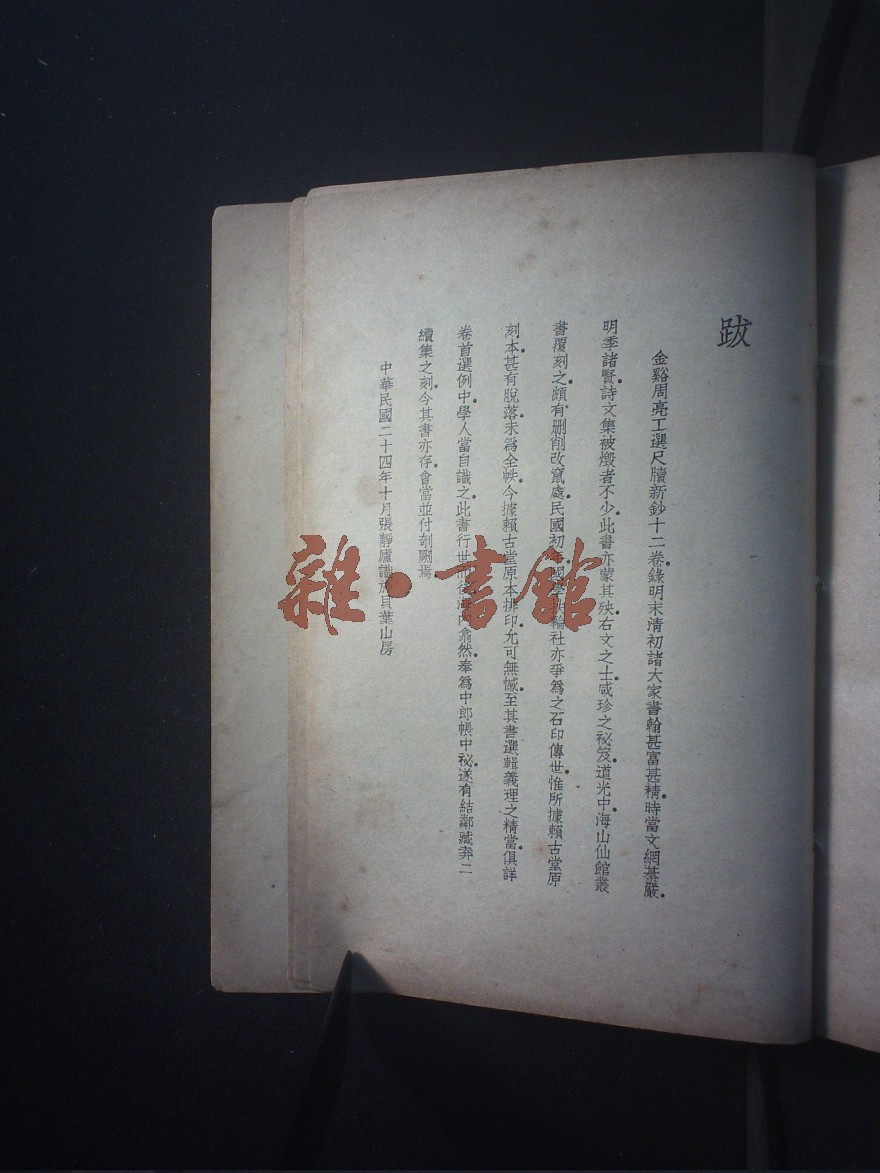 跋
金谿周亮工選尺牘新鈔十二卷．錄明末清初諸大家書翰甚富甚精．時當文網綦嚴．
明季諸賢．詩文集被燬者不少．此書亦蒙其殃．右文之士．咸珍之祕笈．道光中．海山仙館叢
書覆刻之．頗有刪削改竄處．民國初年．國學扶輪社亦爭爲之石印傳世．惟所據賴古堂原
刻本．甚有脫落．未爲全帙．今據賴古堂原本排印．允可無憾．至其書選輯義理之精當．俱詳
卷首選例中．學人當自識之．此書行世而後．海內翕然．奉爲中郎帳中祕．遂有結鄰藏弆二
續集之刻．今其書亦存．會當並付剞劂焉
中華民國二十四年十月張靜廬識於貝葉山房
雜·書館